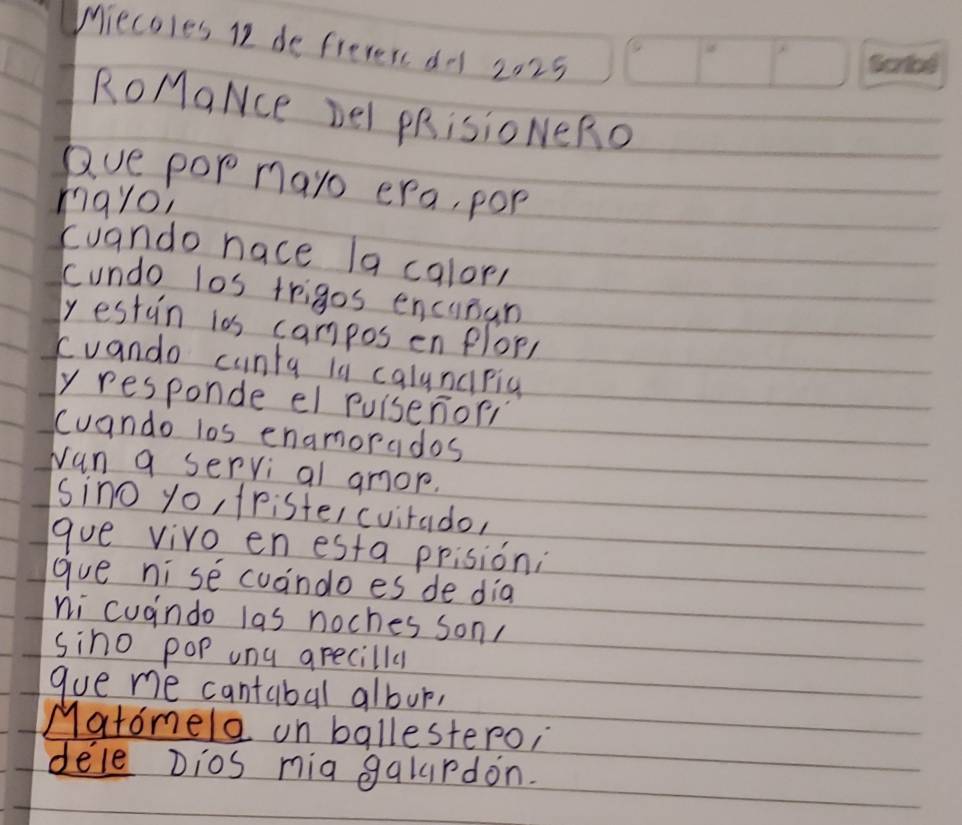 Miecoles 12 de frerero del 2025
Scribe
ROMaNce Del pRisioNeRO
Que por mayo era, por
mayo,
cuando hace la calor,
cundo los trigos encañan
y están los campos en flor,
cuando canta la calandria
y responde el ruiseñor,
cuando los enamorados
van a servi al amor.
sino yo, triste, cuitado,
que vivo en esta prisión;
que ni sé cuándo es de día
ni cuándo las noches son,
sino por una arecilla
que me cantabal albur,
Matómela un ballestero;
déle Dios mia galardón.